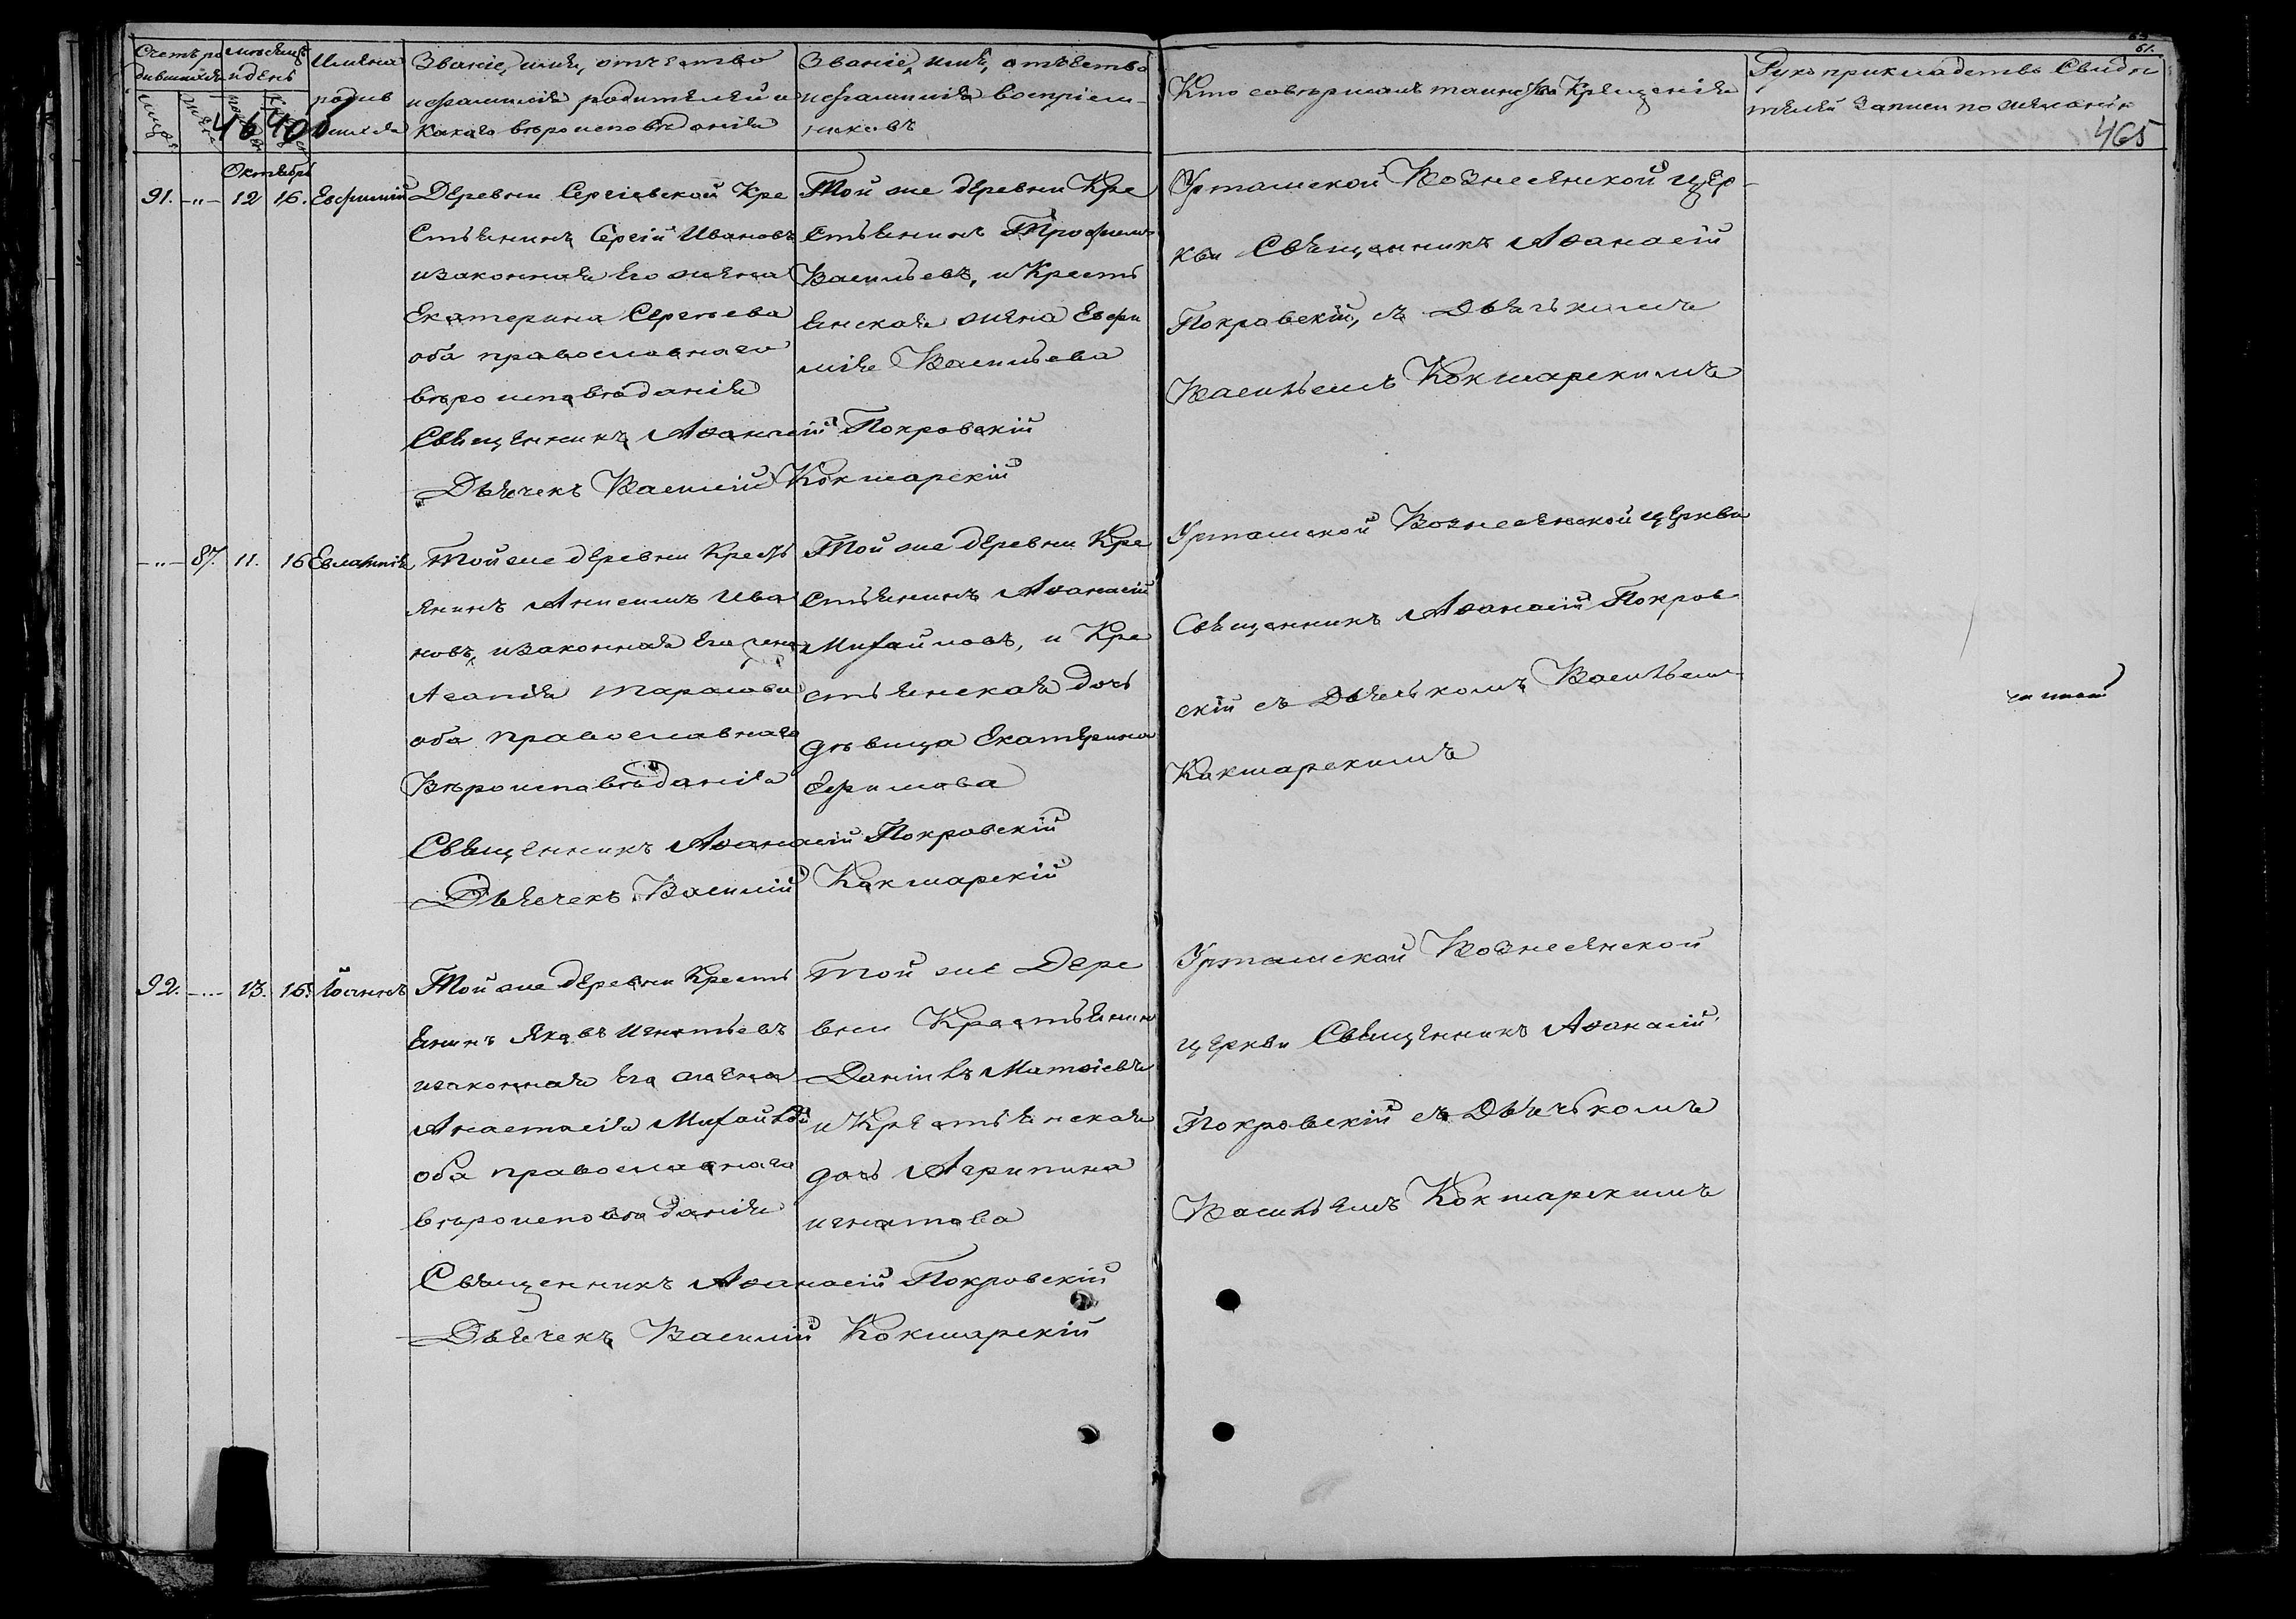 65
61.
Счетъ ро
дившихся
мѣсяцъ
и день
Имена
родив
шихся
Званіе, имя, отчество
и фамилія родителей и
какаго вѣроисповѣданія
Званіе, имя, отчество
и фамилія воспріем-
никовъ
Кто совершалъ таинство Крещенія
Рукоприкладство Свидѣ
телей записи по желанію
464 об
465
Октябрь
91. -"- 12 16. Евфимій
Деревни Сергіевской Кре
стьянинъ Сергій Ивановъ
и законная его жена
Екатерина Сергѣева
оба православнаго
вѣроисповѣданія
Той же деревни Кре
стьянинъ Трофимъ
Васильевъ, и Кресть
янская жена Евфи
мія Васильева
Урташской Вознесенской цер-
кви Священникъ Аѳанасій
Покровскій, съ Дьячькомъ
Васильемъ Кокшарскимъ
Священникъ Аѳанасій Покровскій
Дьячекъ Василій Кокшарскій
-"- 87. 11. 16 Евлампія
Той же деревни Кресть
янинъ Анисимъ Ива
новъ, и законная его жена
Агапія Тарасова
оба православнаго
Вѣроисповѣданія
Той же деревни Кре
стьянинъ Аѳанасій
Михайловъ, и Кре
стьянская дочь
дѣвица Екатерина
Ефимова
Урташской Вознесенской церкви
Священникъ Аѳанасій Покров
скій съ Дьячькомъ Васильем
Кокшарскимъ
Священникъ Аѳанасій Покровскій
Дьячекъ Василій Кокшарскій
92. -"- 13. 16. Іоаннъ
Той же деревни Кресть
янинъ Яковъ Игнатьевъ
и законная его жена
Анастасія Михайлова
оба православнаго
вѣроисповѣданія
Той же Дере
вни Крестьянинъ
Даніилъ Матѳіевъ
и Крестьянская
дочь Агрипина
Игнатова
Урташской Вознесенской
церкви Священникъ Аѳанасій
Покровскій съ Дьячькомъ
Васильемъ Кокшарскимъ
Священникъ Аѳанасій Покровскій
Дьячекъ Василій Кокшарскій